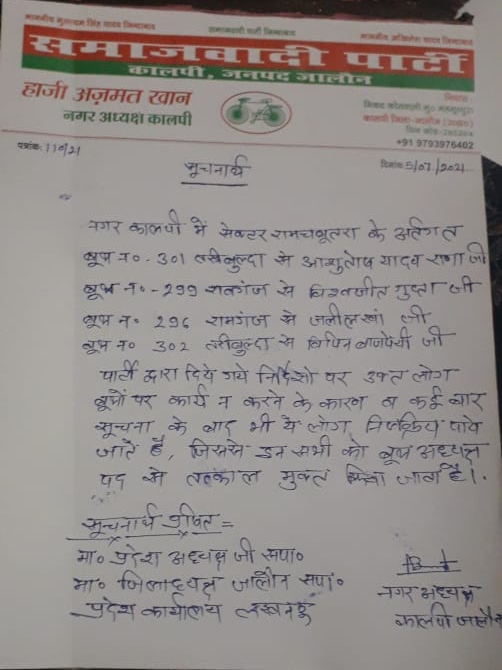 माननीय मुलायम सिंह यादव जिन्दाबाद
समाजवादी पार्टी जिन्दाबाद
माननीय अखिलेश यादव जिन्दाबाद
समाजवादी पार्टी
कालपी, जनपद जालौन
हाजी अज़मत खान
नगर अध्यक्ष कालपी
निवास :
निकट कोतवाली मु०
कालपी जिला-जालौन (उ०प्र०)
पिन कोड-285204
+91 9793976402
पत्रांक: 110/21
दिनांक 5/07/2021
सूचनार्थ
नगर कालपी में सेक्टर रामचबूतरा के अर्तगत
बूथ न०- 301 तरीबुल्दा से आशुतोष यादव राणा जी
बूथ न०- 299 से विश्वजीत गुप्ता जी
बूथ न० 296 रामगंज से जलील खां जी
बूथ न० 302 तरीबुल्दा से विपिन बाजपेयी जी
पार्टी द्वारा दिये गये निर्देशो पर उक्त लोग
बूथों पर कार्य न करने के कारण व कई बार
सूचना के बाद भी ये लोग निष्क्रिय पाये
जाते है, जिससे इन सभी को बूथ अध्यक्ष
पद से तत्काल मुक्त किया जाता है।
सूचनार्थ प्रेषित =
मा० प्रदेश अध्यक्ष जी सपा०
मा० जिलाध्यक्ष जालौन सपा०
प्रदेश कार्यालय लखनऊ
नगर अध्यक्ष
कालपी जालौन